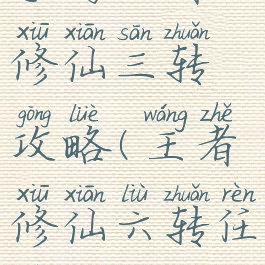 xiū xiān sān zhuǎn
修仙三转
gōng lüè wáng zhě
攻略(王者
xiū xiān liù zhuǎn rèn
修仙六转任